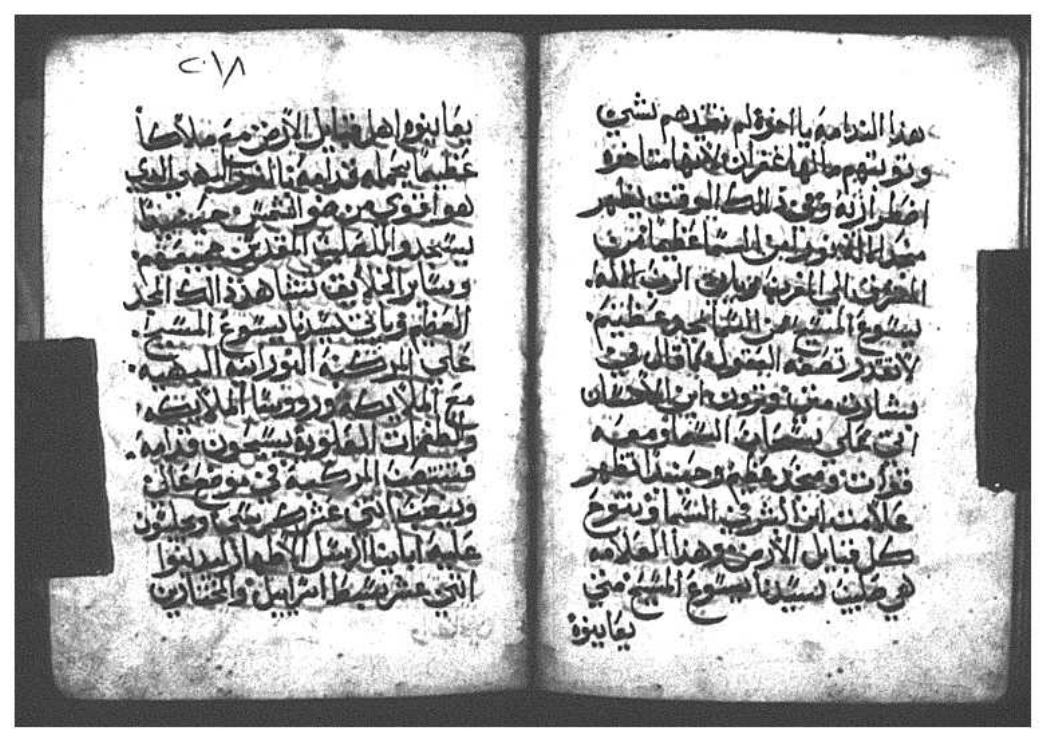 هذا الندامه يا اخوة لم تفيدهم بشي
وتوبتهم مالها غفران ولانها متاخره
اضطراريه وفي ذالك الوقت يظهر
من الى السما عظيما من
المشرق الي المغرب وياتي الرب الاله
يسوع المسيح من السما بمجد عظيم
لا تقدر تصفه كما قال في
بشارة متي وترون ابن الانسان
اتي علي سحاب السما ومعه
قوات ومجد عظيم وحينيذا تظهر
علامت ابن البشر في السما وتنوح
كل قبايل الارض وهذا العلامه
هي صليب سيدنا يسوع المسيح متي
يعاينوه
٢٠١٨
يعاينوه اهل قبايل الارض مع ملاكا
عظيما يحمله قدامه البهي الدي
هو اقوي من ضو الشمس حينيذا
يسجدوا للصليب المقدس جميعهم
وساير الخلايق هذ ذالك المجد
العظيم وياتي سيدنا يسوع المسيح
علي المركبه النورانيه البهيه
مع الملايكه وروسا الملايكه
والطغمات العلويه يسبحون قدامه
المركبه في موضعان
اتني عشر كرسي ويجلسون
عليه ابايتا الرسل الاطهار ليدينوا
اتني عشر سبط اسراييل والمختارين